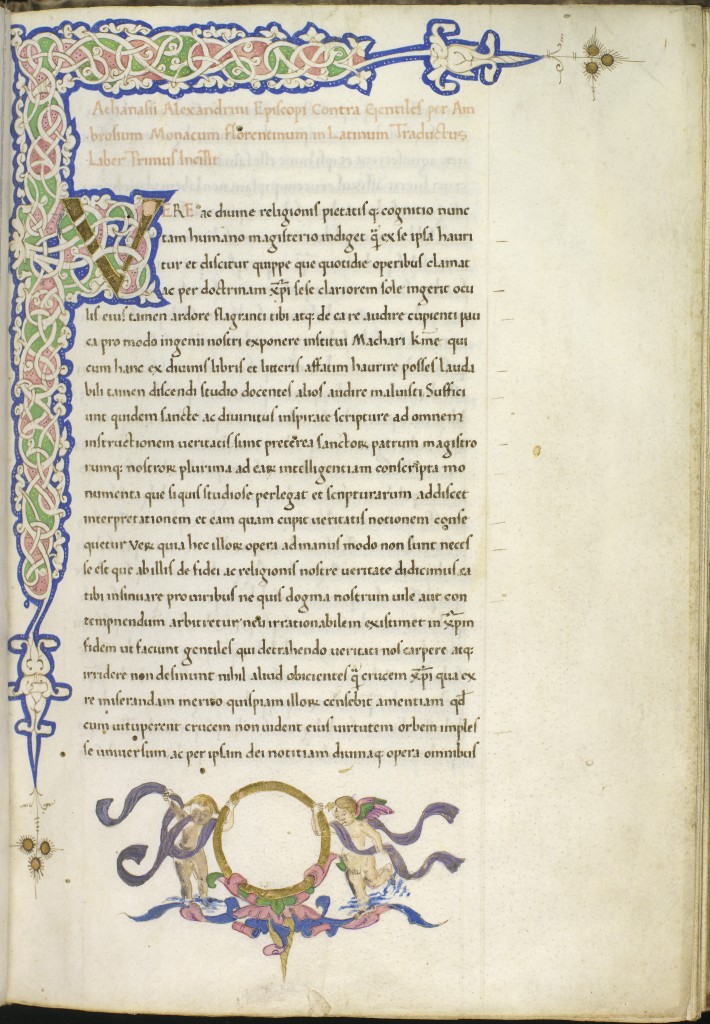 Athanasii Alexandrini Episcopi Contra Gentiles per Am
brosium Monacum florentinum in Latinum Traductus
Liber Primus Incipit
VERE ac divine religionis pietatisq; cognitio nunc
tam humano magisterio indiget q̃ ex se ipsa hauri
tur et discitur quippe que quotidie operibus clamat
ac per doctrinam xp̃i sese clariorem sole ingerit ocu
lis eius tamen ardore flagranti tibi atq; de ea re audire cupienti pau
ca pro modo ingenii nostri exponere institui Machari
cum hanc ex divinis libris et litteris affatim haurire posses lauda
bili tamen discendi studio docentes alios audire maluisti Suffici
unt quidem sancte ac divinitus inspirate scripture ad omnem
instructionem veritatis sunt preterea sanctoꝝ patrum magistro
rumq; nostroꝝ plurima ad eaꝝ intelligentiam conscripta mo
numenta que si quis studiose perlegat et scripturarum addiscet
interpretationem et eam quam cupit veritatis notionem conse
quetur Veꝝ quia hec illoꝝ opera ad manus modo non sunt neces
se est que ab illis de fidei ac religionis nostre veritate didicimus ea
tibi insinuare pro viribus ne quis dogma nostrum vile aut con
tempnendum arbitretur neu irrationabilem existimet in xp̃m
fidem ut faciunt gentiles qui detrahendo veritati nos carpere atq;
irridere non desinunt nihil aliud obicientes q̃ crucem xp̃i qua ex
re miserandam merito quispiam illoꝝ censebit amentiam qđ
cum vituperent crucem non vident eius virtutem orbem imples
se universum ac per ipsam dei notitiam divinaq; opera omnibus